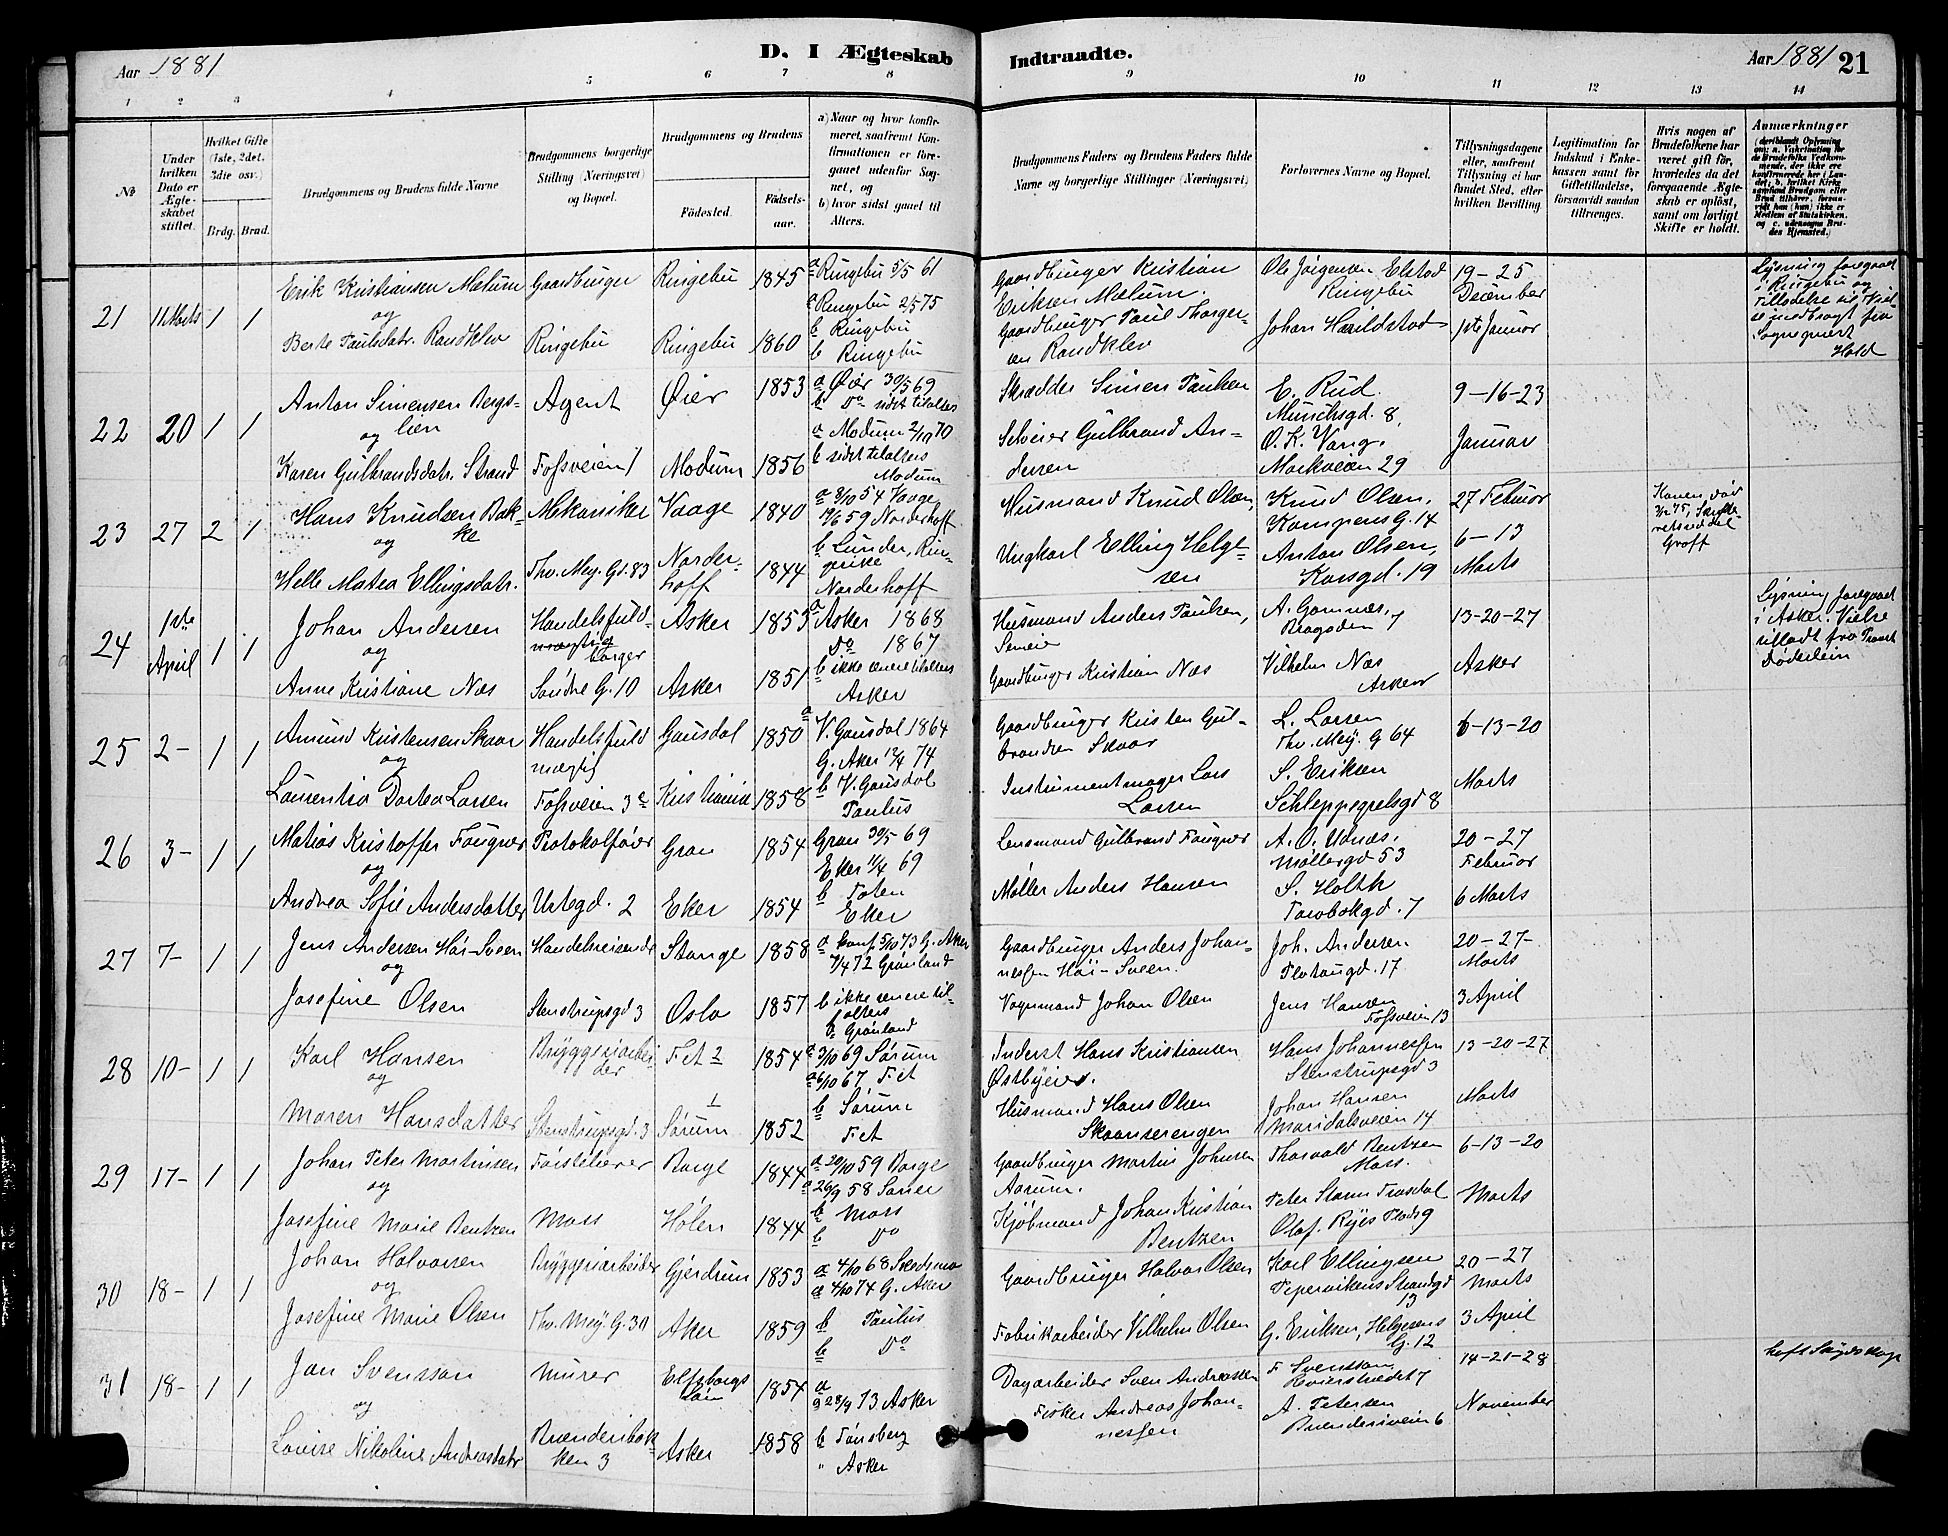 Aar 1881
D. I Ægteskab Indtraadte.
Aar 1881 21
1 2 3 4 5 6 7 8 9 10 11 12 13 14
No
Under hvilken Dato er Ægteskabet stiftet.
Hvilket Gifte (1ste, 2det, 3die osv.)
Brdg. Brud.
Brudgommens og Brudens fulde Navne
Brudgommens borgerlige Stilling (Næringsvei) og Bopæl.
Brudgommens og Brudens
Fødested.
Fødselsaar.
a) Naar og hvor konfirmeret, saafremt Konfirmationen er foregaaet udenfor Sognet, og
b) hvor sidst gaaet til Alters.
Brudgommens Faders og Brudens Faders fulde Navne og borgerlige Stillinger (Næringsvei)
Forlovernes Navne og Bopæl.
Tillysningsdagene eller, saafremt Tillysning ei har fundet Sted, efter hvilken Bevilling.
Legitimation for Indskud i Enkekassen samt for Giftetilladelse, forsaavidt saadan tiltrænges.
Hvis nogen af Brudefolkene har været gift før, hvorledes da det foregaaende Ægteskab er opløst, samt om lovligt Skifte er holdt.
Anmærkninger
21 11 Marts 1 1
Erik Kristiansen Mælum
og
Berte Paulsdatr. Randklev
Gaardbruger
Ringebu
Ringebu 1845
Ringebu 1860
a Ringebu 5/5 61
a Ringebu 2/5 75
b Ringebu
b Ringebu
Gaardbruger Kristian
Eriksen Mælum.
Gaardbruger Paul Thorger-
sen Randklev
Ole Jørgensen Elstad
Ringebu
Johan Harildstad
19-25
December
1ste Januar
Lysning foregaaet
i Ringebu og
Tilladelse til Viel-
se indbragt fra
Sognepræst
Hald
22 20 1 1
Anton Simensen Bergs-
og lien
Karen Gulbrandsdatr. Strand
Agent
Fossveien 1
Øier 1853
Modum 1856
a Øier 30/5 69
b Do sidst tilalters
a Modum 2/10 70
b sidst tilalters
Modum
Skrædder Simen Paulsen
Selveier Gulbrand An-
dersen
E. Rud
Munchsgd. 8,
O. K. Vang.
Markveien 29
9-16-23
Januar
23 27 2 1
Hans Knudsen Bak-
og ke
Helle Matea Ellingsdatr.
Mekaniker
Thv. Mey. Gd. 83
Vaage 1840
Norder-
hoff 1844
a 8/10 54 Vaage
19/6 59 Norderhoff
b Lunder, Rin-
gerike
Norderhoff
Husmand Knud Olsen,
Ungkarl Elling Helge-
sen
Knud Olsen,
Kampens G. 14
Anton Olsen,
Korsgd. 19
27 Februar
6-13
Marts
Konen død
75, Skifte-
ret
Groff
24 1ste April 1 1
Johan Andersen
og
Anne Kristiane Næs
Handelsfuld-
mægtig
borger
Søndre G. 10
Asker 1855
Asker 1851
a Asker 1868
Do 1867
b ikke senere tilalters
Asker
Husmand Anders Paulsen,
Semeie
Gaardbruger Kristian Næs
A. Gamnæs,
Bragaden 7
Vilhelm Næs
Asker
13-20-27
Asker
Lysning foregaaet
i Asker. Vielse
tilladt fra Provst
Døderlein
25 2- 1 1
Amund Kristensen Skaar
og
Laurentia Dortea Larsen
Handelsfuld
mægtig
Fossveien 3c
Gausdal 1850
Kristiania 1858
a V. Gausdal 1864
G. Aker 12/4 74
b V. Gausdal
Paulus
Gaardbruger Kristen Gul-
brandsen Skaar
Instrumentmager Lars
Larsen
L. Larsen
Thv. Mey. G 64
S. Eriksen
Schleppegrelsgd 8
6-13-20
Marts
26 3- 1 1
Matias Kristoffer Fougner
og
Andrea Sofie Andersdatter
Protokolfører
Urtegd. 2
Gran 1854
Eker 1854
Gran 30/5 69
Eker 11/4 69
b Toten
Eker
Lensmand Gulbrand Fougner
Møller Anders Hansen
A. O. Udnæs,
Møllergd 53
S. Holth
Torvbakgd. 7
20-27
Februar
6 Marts
27 7- 1 1
Jens Andersen Høi-Sveen
og
Josefine Olsen
Handelsreisende
Stenstrupsgd 3
Stange 1858
Oslo 1857
a konf 5/10 73 G. Aker
7/4 72 Grønland
b ikke senere til-
alters
b Grønland
Gaardbruger Anders Johan-
nessen Høi-Sveen.
Vognmand Johan Olsen
Joh. Andersen
17
Jens Hansen
Fossveien 13
20-27-
Marts
3 April
28 10- 1 1
Karl Hansen
og
Maren Hansdatter
Bryggeriarbei-
der
Stenstrupsgd. 3
Fet 2 1854
1
Sørum 1852
a 3/10 69 Sørum
a 6/10 67 Fet
b Sørum
Fet
Inderst Hans Kristiansen
Østbyeier.
Husmand Hans Olsen
Skaanserengen
Hans Johannessen
Stenstrupsgd 3
Johan Hansen
Maridalsveien 14
13-20-27
Marts
29 17- 1 1
Johan Peter Martinsen
og
Josefine Marie Bentzen
Førstelærer
Moss
Borge 1844
Hølen 1844
a 20/10 59 Borge
a 26/9 58 Saner
b Moss
b Do
Gaardbruger Martin Johnsen
Aarum.
Kjøbmand Johan Kristian
Bentzen
Thorvald Bentzen
Moss.
Peter Storm Frosdal
Olaf. Ryes Plads 9
6-13-20
Marts
30 18- 1 1
Johan Halvorsen
og
Josefine Marie Olsen
Bryggeriarbeider
Thv. Mey G. 30
Gjerdrum 1853
Aker 1859
a 4/10 68 Skedsmo
a 4/10 74 G. Aker
b Paulus
b Do
Gaardbruger Halvor Olsen
Fabrikarbeider Vilhelm Olsen
Karl Ellingsen
Pepervikens Strandgd
13
G. Eriksen, Helgesens
G. 12
20-27
Marts
3 April
31 18- 1 1
Jan Svensson
og
Lovise Nikoline Andreasdatr
Murer
Brænderibak-
ken 3
Elfsborgs
Län 1854
Asker 1858
a
a 28/9 73 Asker
b Tønsberg
" Asker
Dagarbeider Sven Andreassen
Fisker Andreas Johan-
nessen
F Svensson
7
A. Petersen
Brænderiveien 6
14-21-28
November